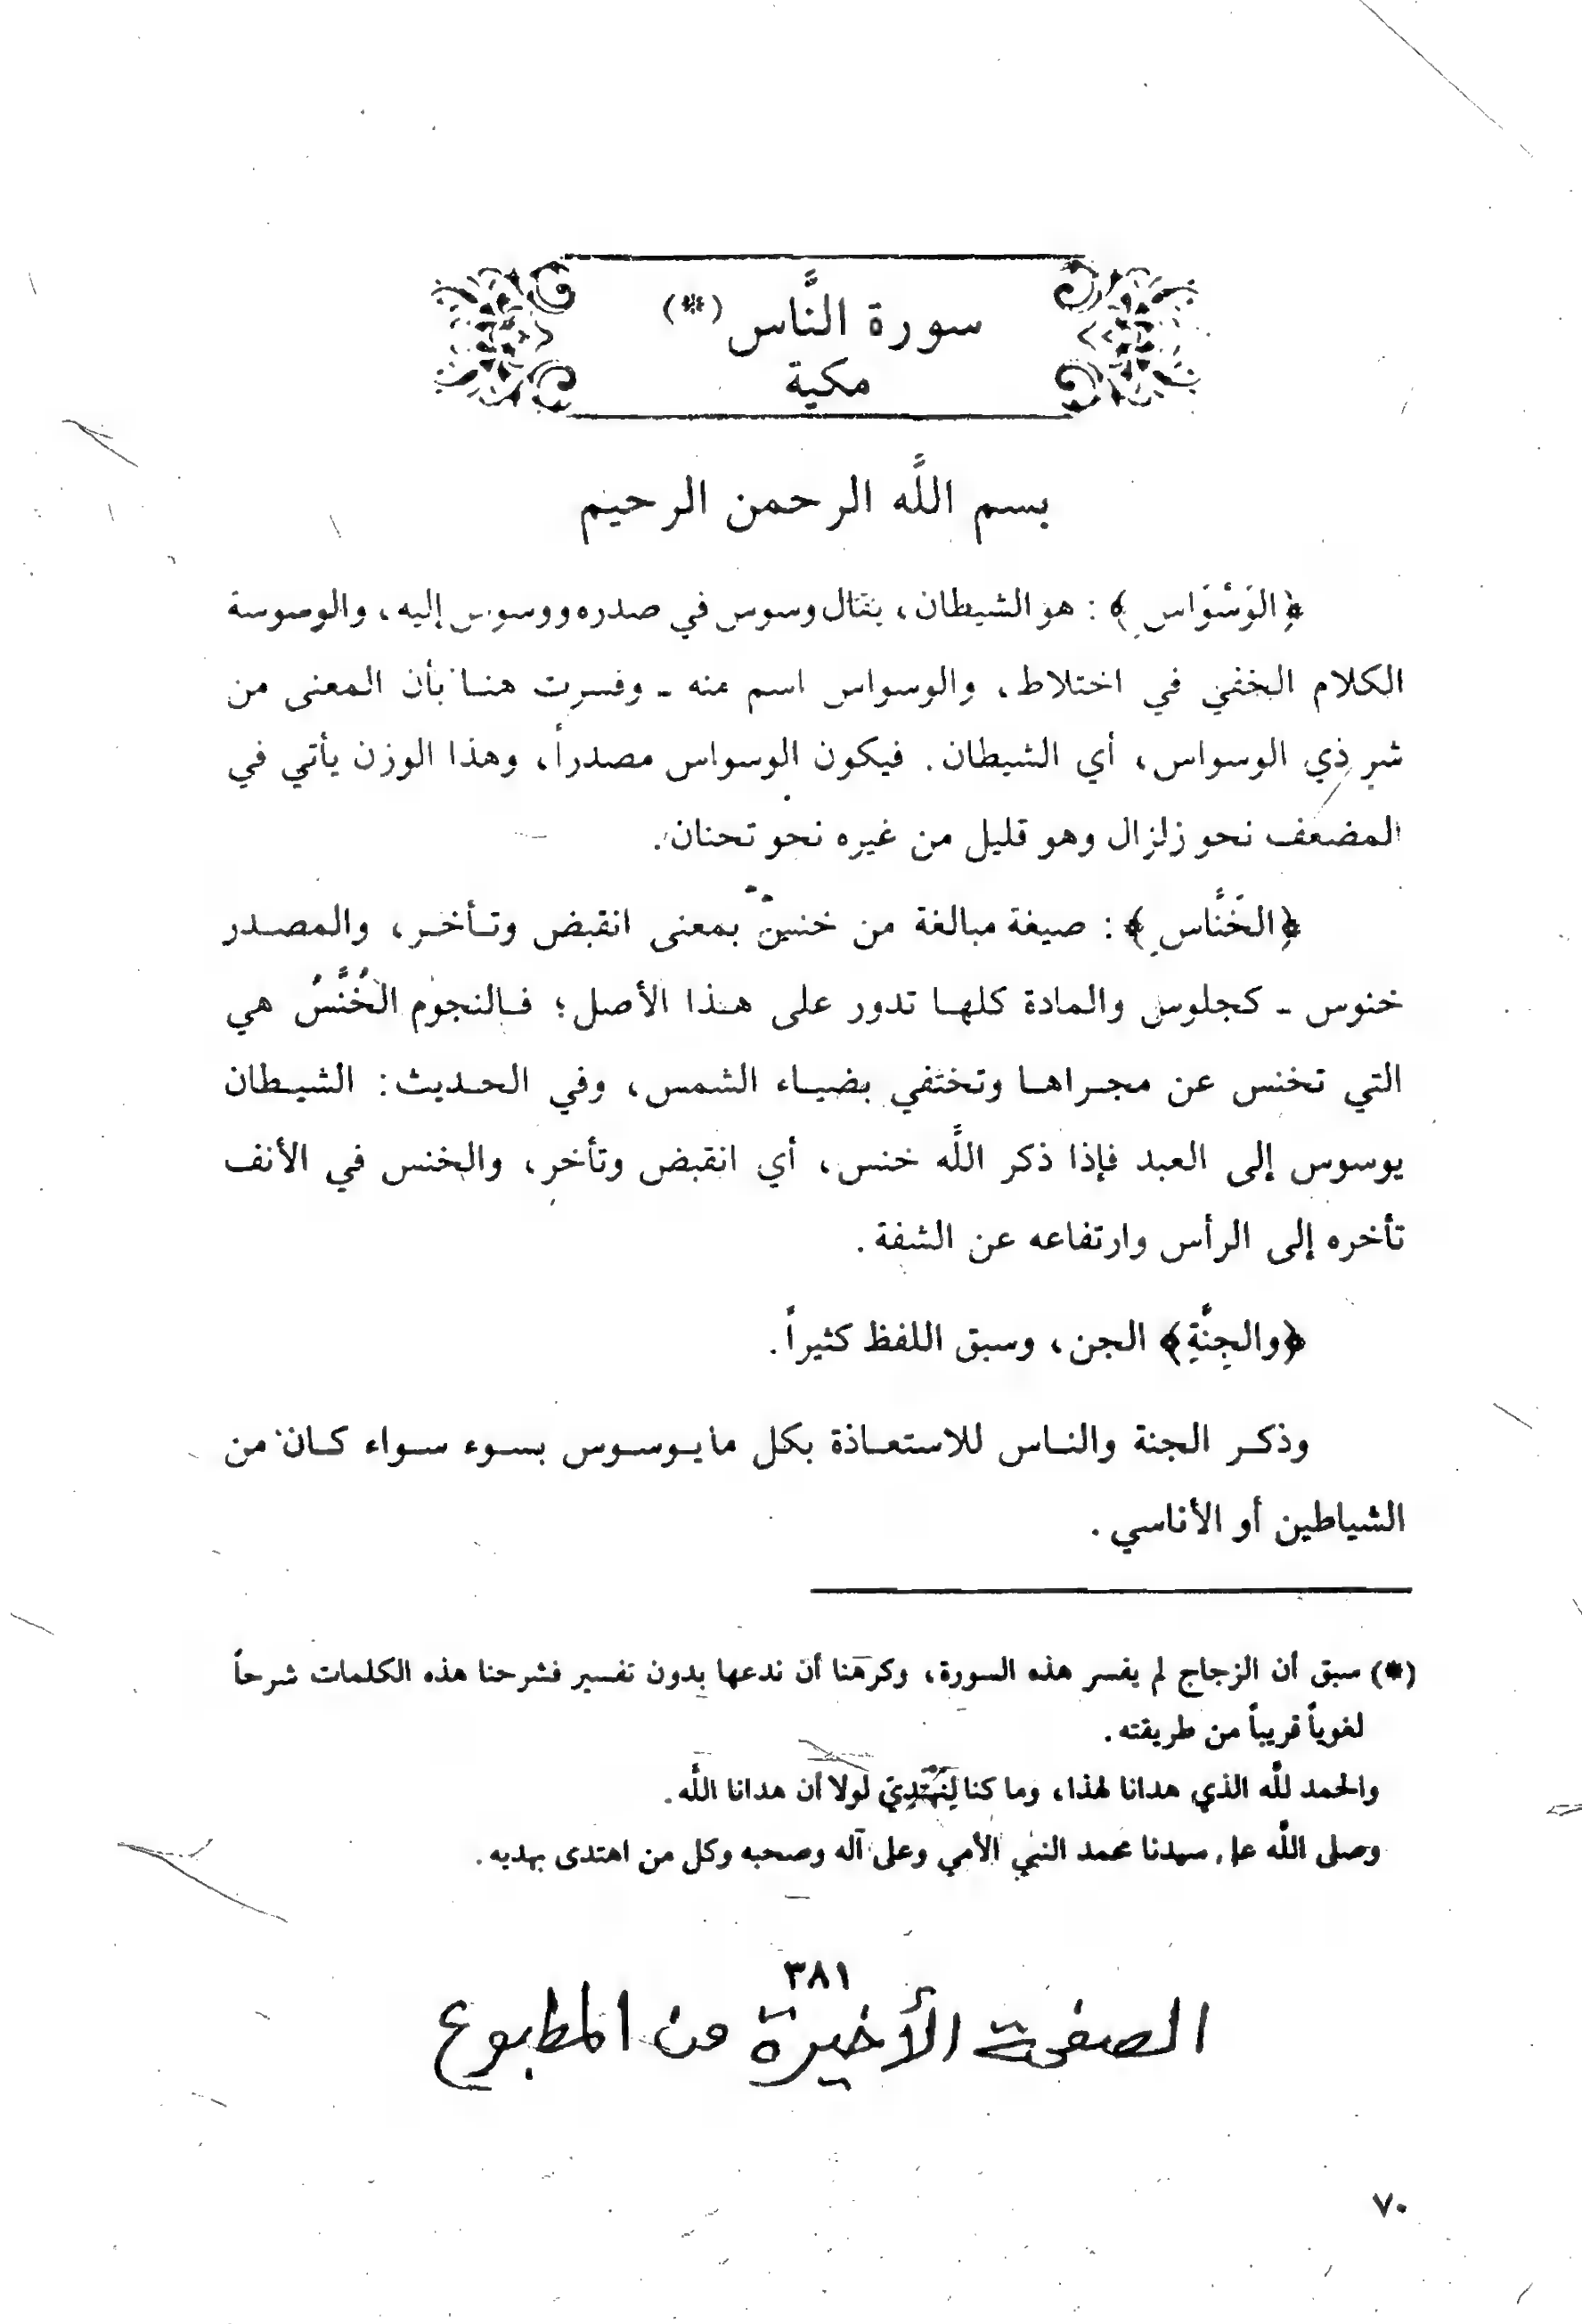 سورة النَّاس (*)
مكية
بسم اللَّه الرحمن الرحيم
﴿الوَسْوَاسِ﴾: هو الشيطان، يقال وسوس في صدره ووسوس إليه، والوسوسة
الكلام الخفي في اختلاط، والوسواس اسم منه ـ وفسرت هنا بأن المعنى من
شر ذي الوسواس، أي الشيطان. فيكون الوسواس مصدراً، وهذا الوزن يأتي في
المضعف نحو زلزال وهو قليل من غيره نحو تحنان.
﴿الخَنَّاسِ﴾: صيغة مبالغة من خنس بمعنى انقبض وتأخر، والمصدر
خنوس ـ كجلوس والمادة كلها تدور على هذا الأصل؛ فالنجوم الخُنَّسُ هي
التي تخنس عن مجراها وتختفي بضياء الشمس، وفي الحديث: الشيطان
يوسوس إلى العبد فإذا ذكر اللَّه خنس، أي انقبض وتأخر، والخنس في الأنف
تأخره إلى الرأس وارتفاعه عن الشفة.
﴿والجِنَّةِ﴾ الجن، وسبق اللفظ كثيراً.
وذكر الجنة والناس للاستعاذة بكل ما يوسوس بسوء سواء كان من
الشياطين أو الأناسي.
(*) سبق أن الزجاج لم يفسر هذه السورة، وكرهنا أن ندعها بدون تفسير فشرحنا هذه الكلمات شرحاً
لغوياً قريباً من طريقته.
والحمد للَّه الذي هدانا لهذا، وما كنا لِنَهْتَدِيَ لولا أن هدانا اللَّه.
وصلى اللَّه على سيدنا محمد النبي الأمي وعلى آله وصحبه وكل من اهتدى بهديه.
٣٨١
الصفحة الأخيرة من المطبوع
٧٠